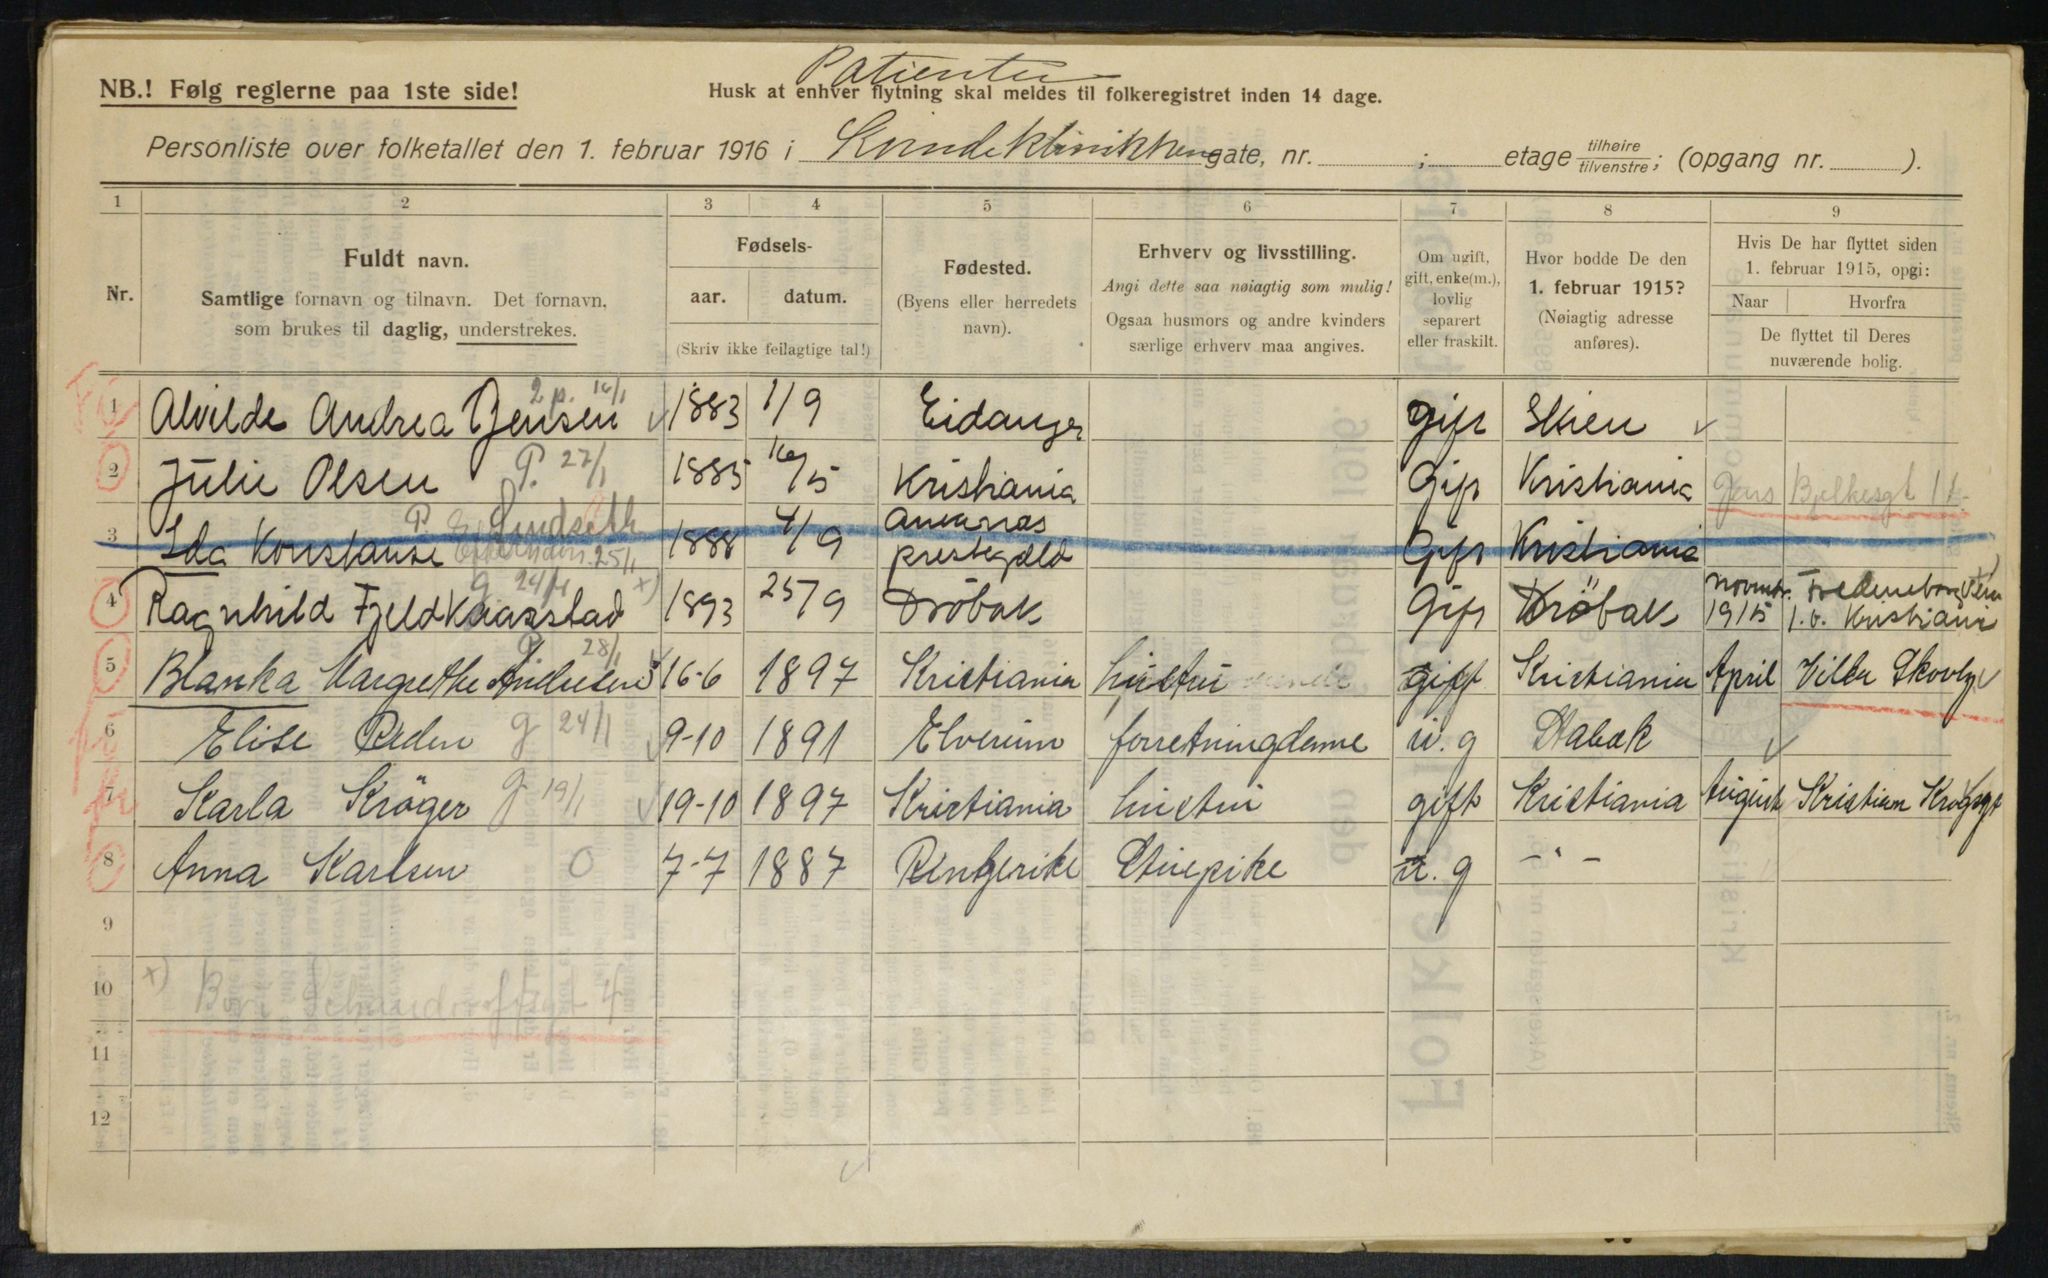 Patienter
NB.! Følg reglerne paa 1ste side!
Husk at enhver flytning skal meldes til folkeregistret inden 14 dage.
Personliste over folketallet den 1. februar 1916 i Kvindeklinikken gate, nr. ; etage tilhøire tilvenstre; (opgang nr. ).
1 2 3 4 5 6 7 8 9
Nr.
Fuldt navn.
Samtlige fornavn og tilnavn. Det fornavn,
som brukes til daglig, understrekes.
Fødsels-
aar. datum.
(Skriv ikke feilagtige tal!)
Fødested.
(Byens eller herredets
navn).
Erhverv og livsstilling.
Angi dette saa nøiagtig som mulig!
Ogsaa husmors og andre kvinders
særlige erhverv maa angives.
Om ugift,
gift, enke(m.),
lovlig
separert
eller fraskilt.
Hvor bodde De den
1. februar 1915?
(Nøiagtig adresse
anføres).
Hvis De har flyttet siden
1. februar 1915, opgi:
Naar Hvorfra
De flyttet til Deres
nuværende bolig.
2 p. 16/1
1 Alvilde Andrea Jensen 1883 1/9 Eidanger gift Skien
2 Julie Olsen P. 27/1 1885 16/5 Kristiania Gift Kristiania Jens Bjelkesgt 11
P Lindseth
3 Ida Konstanse 25/1 1888 4/9 prestegjeld Gift Kristiania
g 24/1
4 Ragnhild Fjeld Kaasstad x) 1893 25/9 Drøbak Gift Drøbak Novmbr. 1915 Kristiania
P 28/1
5 Blanka Margrethe Andersen 16-6 1897 Kristiania hustru gift Kristiania April Villa Skovly
6 Elise g 24/1 9-10 1891 Elverum forretningdame u. g Stabæk
7 Karla Krøger g 19/1 19-10 1897 Kristiania hustru gift Kristiania August Kristian Krogsgt
8 Anna Karlsen O 7-7 1887 Ringerike Stuepike u. g - " -
9
10 x)
11
12